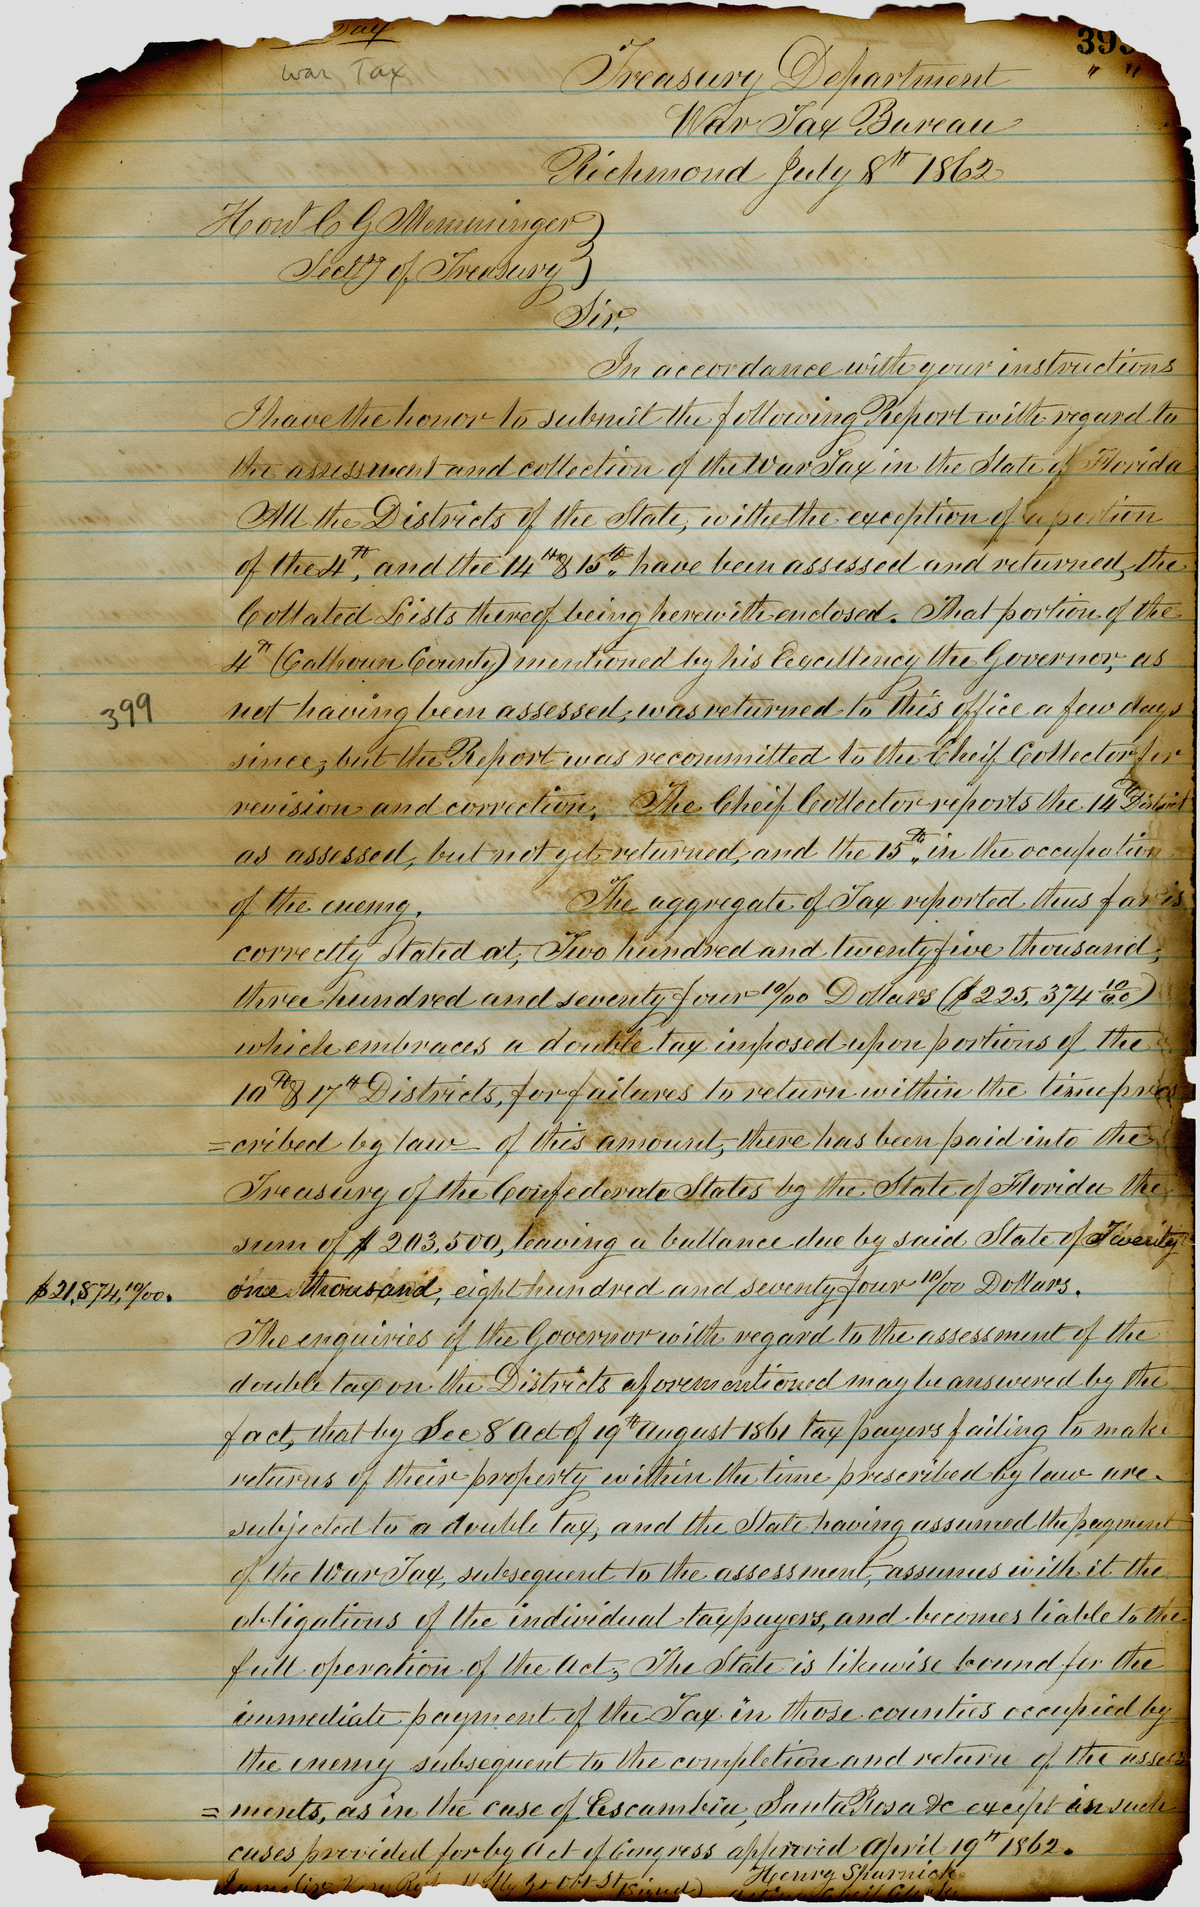 Tax
War Tax
Treasury Department
War Tax Bureau
Richmond July 8th 1862
Honl C G Memminger
Secty of Treasury
Sir,
In accordance with your instructions
I have the honor to submit the following Report with regard to
the assessment and collection of the War Tax in the State of Florida
All the Districts of the State, with the exception of a portion
of the 4th, and the 14th & 15th have been assessed and returned, the
Collated Lists thereof being herewith enclosed. That portion of the
4th (Calhoun County) mentioned by his Excellency the Governor, as
399
not having been assessed, was returned to this office a few days
since, but the Report was recommitted to the Cheif Collector for
revision and correction. The Cheif Collector reports the 14th District
as assessed, but not yet returned, and the 15th in the occupation
of the enemy. The aggregate of Tax reported thus far is
correctly stated at, Two hundred and twenty five thousand,
three hundred and seventy four 10/00 Dollars ($225,374 10/00)
which embraces a double tax imposed upon portions of the
10th & 17th Districts, for failures to return within the time pres
=cribed by law – of this amount, there has been paid into the
Treasury of the Confederate States by the State of Florida the
sum of $203,500, leaving a ballance due by said State of Twenty
$21,874,10/00. one thousand, eight hundred and seventy four 10/00 Dollars.
The enquiries of the Governor with regard to the assessment of the
double tax on the Districts aforementioned may be answered by the
fact, that by Sec 8 Act of 19th August 1861 tax payers failing to make
returns of their property within the time prescribed by law are
subjected to a double tax, and the State having assumed the payment
of the War Tax, subsequent to the assessment, assumes with it the
obligations of the individual taxpayers, and becomes liable to the
full operation of the Act; The State is likewise bound for the
immediate payment of the Tax in those counties occupied by
the enemy subsequent to the completion and return of the assess
=ments, as in the case of Escambia, Santa Rosa &c except in such
cases provided for by Act of Congress approvid April 19th 1862.
Henry Sparnick
(signed) Acting Chief Clerk